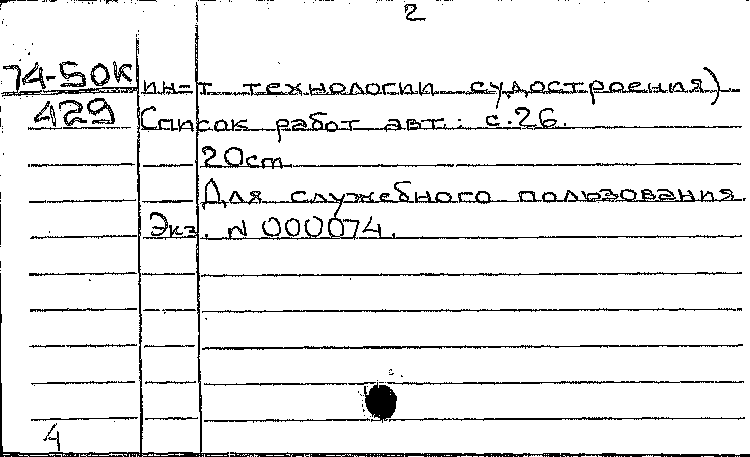 2
74-50К ин-т технологии судостроения)
429 Список работ авт.: с.26.
20cm
Для служебного пользования.
Экз. N 000074.
4